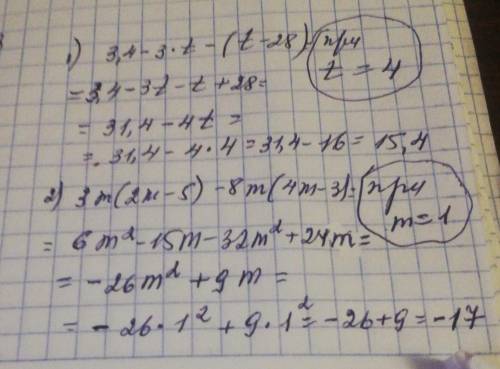 1) 3,4 - 3·t - (t - 28) = при t = 4
= 3,4 - 3t - t + 28 =
= 31,4 - 4t =
= 31,4 - 4·4 = 31,4 - 16 = 15,4
2) 3m(2m - 5) - 8m(4m - 3) = при m = 1
= 6m² - 15m - 32m² + 24m =
= -26m² + 9m =
= -26·1² + 9·1² = -26 + 9 = -17